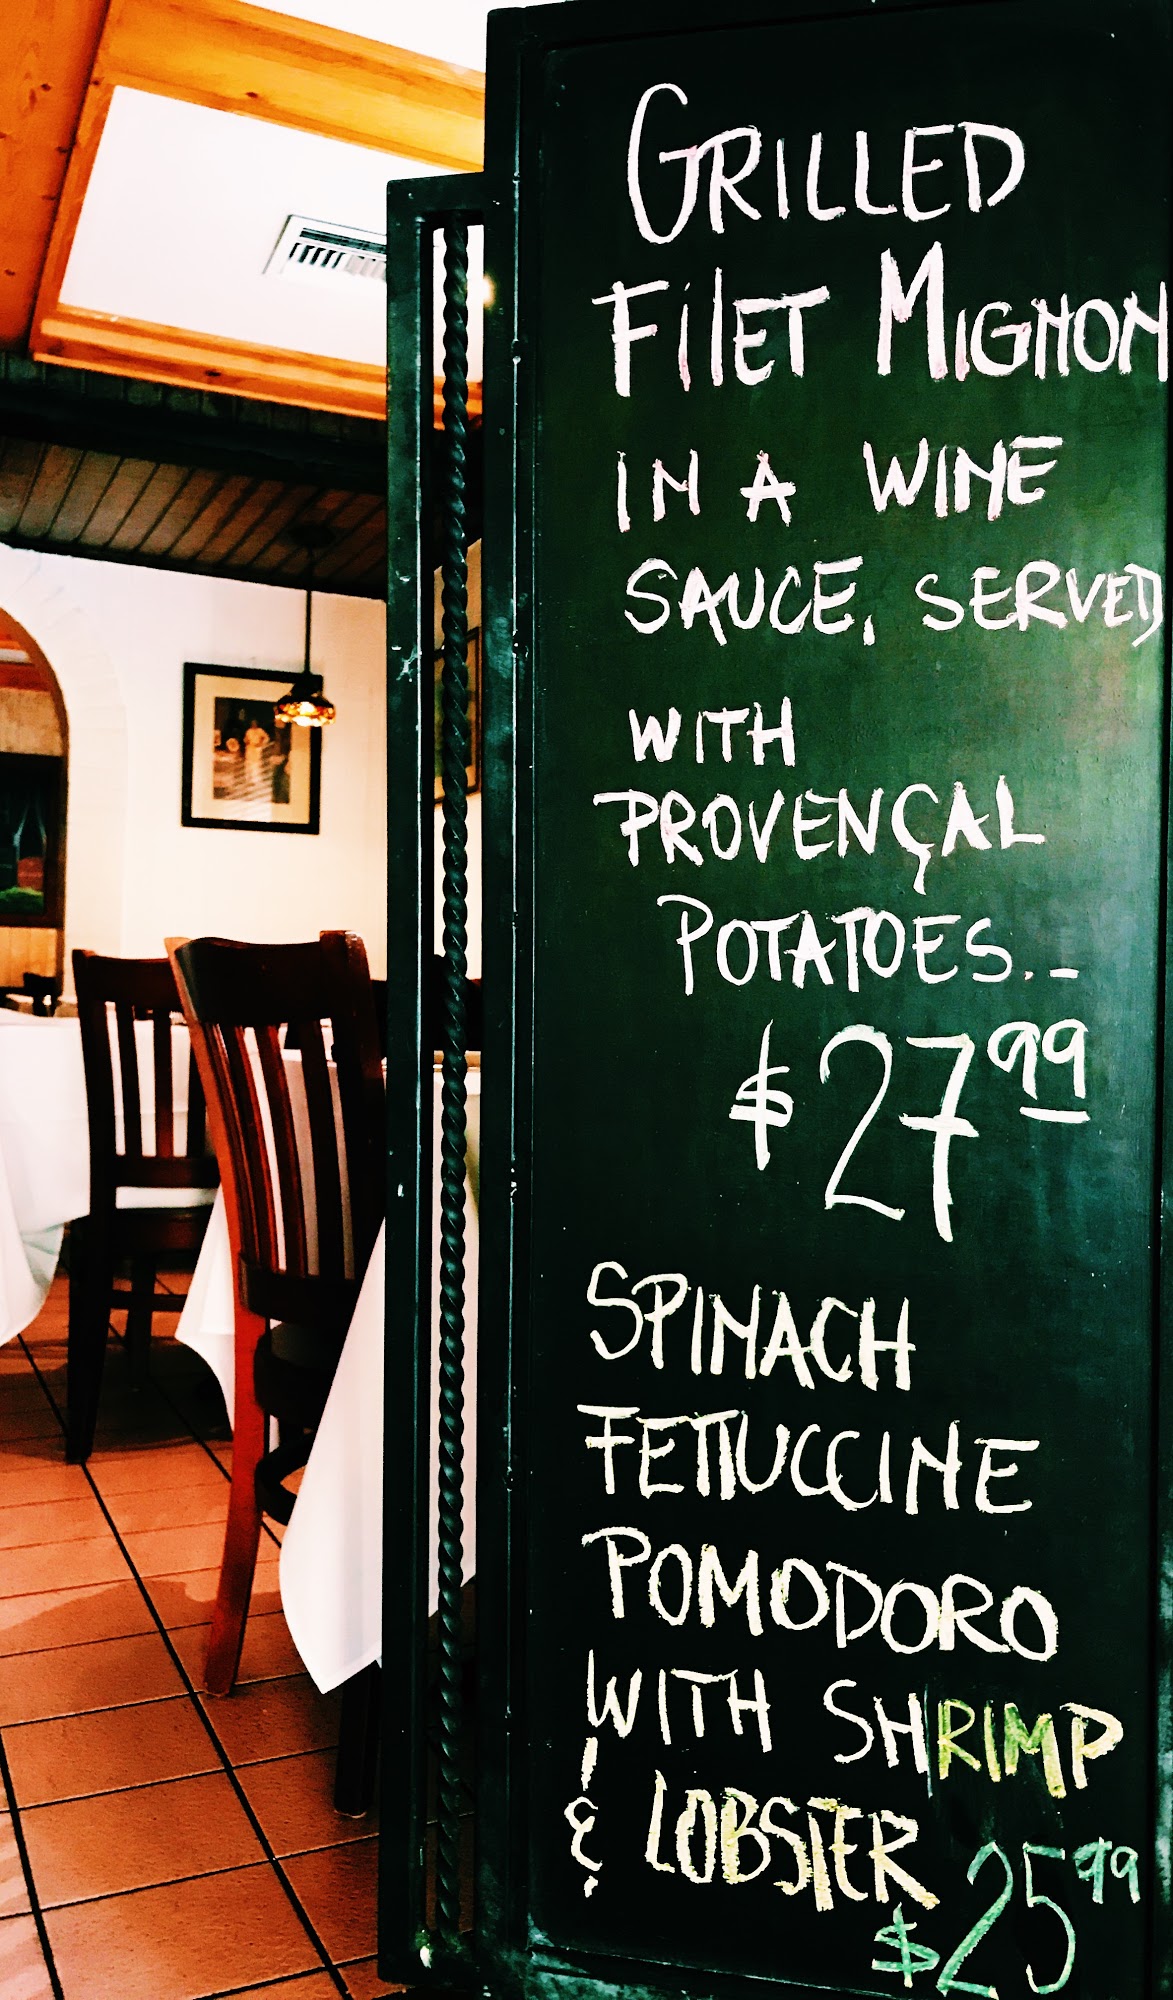 GRILLED
FILET MIGNON
IN A WINE
SAUCE, SERVED
WITH
PROVENÇAL
POTATOES.-
$27.99
SPINACH
FETTUCCINE
POMODORO
WITH SHRIMP
& LOBSTER
$25.99